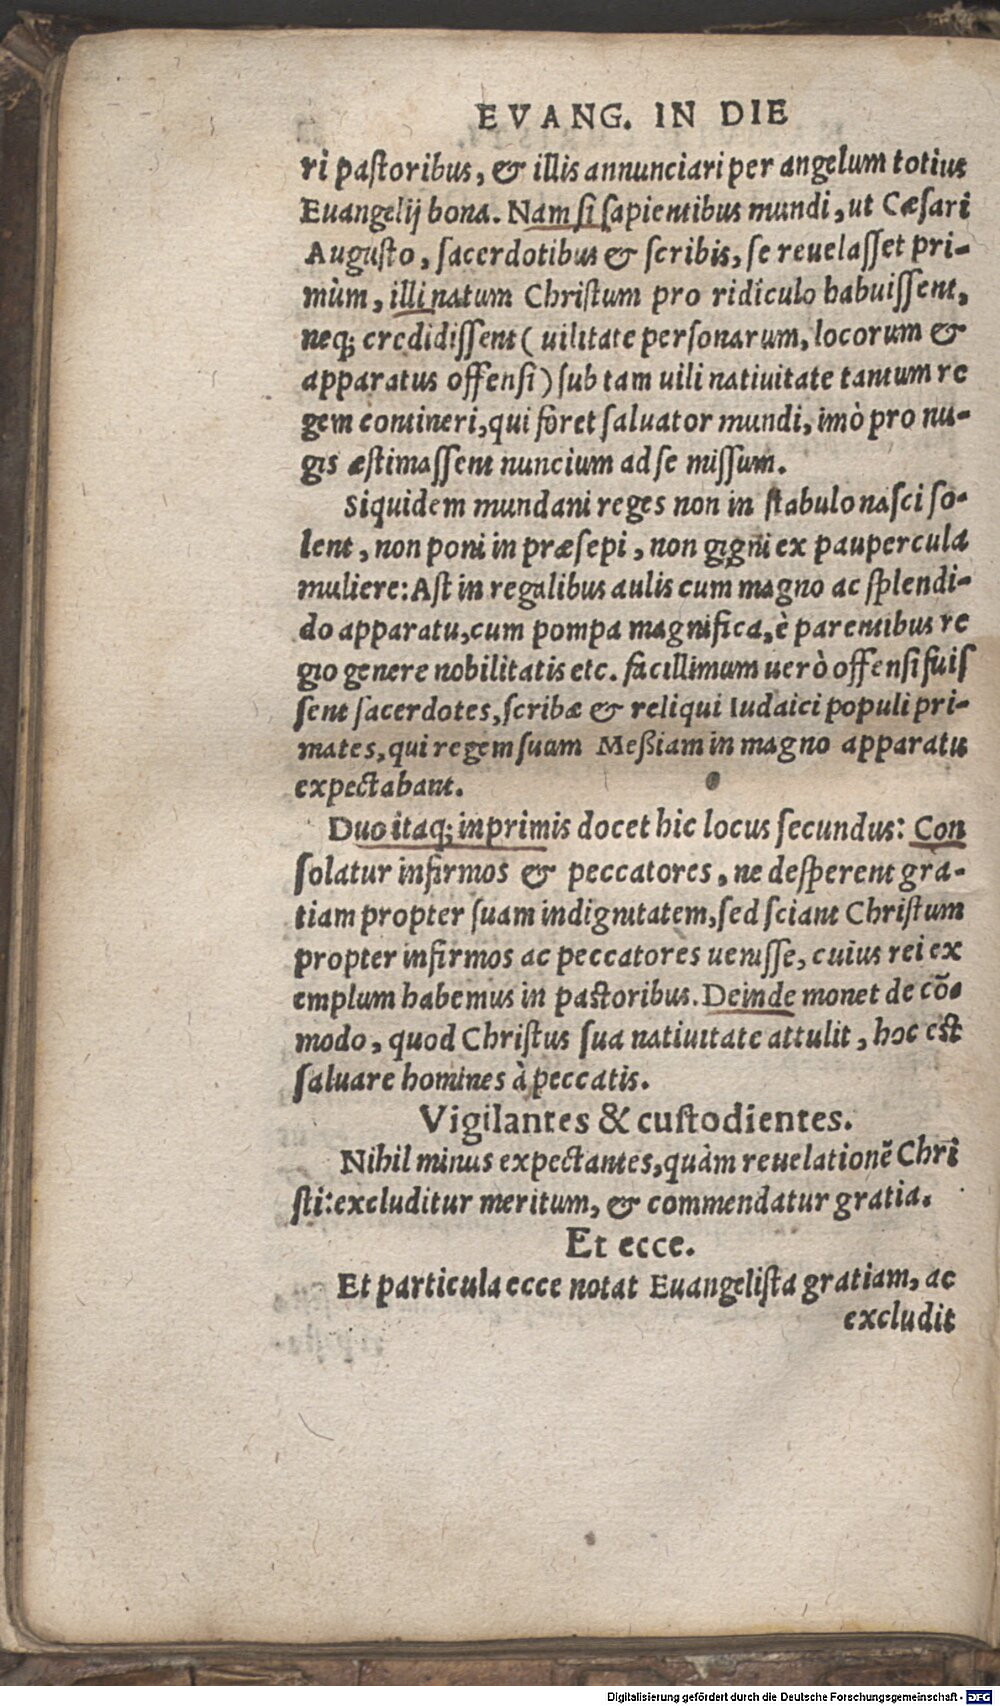 EVANG. IN DIE
ri pastoribus, & illis annunciari per angelum totius
Euangelij bona. Nam si sapientibus mundi, ut Cæsari
Augusto, sacerdotibus & scribis, se reuelasset pri-
mùm, illi natum Christum pro ridiculo habuissent,
neq; credidissent ( uilitate personarum, locorum &
apparatus offensi ) sub tam uili natiuitate tantum re
gem contineri, qui foret saluator mundi, imò pro nu-
gis æstimassent nuncium ad se missum.
Siquidem mundani reges non in stabulo nasci so-
lent, non poni in præsepi, non gigni ex paupercula
muliere: Ast in regalibus aulis cum magno ac splendi-
do apparatu, cum pompa magnifica, è parentibus re
gio genere nobilitatis etc. facillimum uerò offensi fuis
sent sacerdotes, scribæ & reliqui Iudaici populi pri-
mates, qui regem suum Meßiam in magno apparatu
expectabant.
Duo itaq; inprimis docet hic locus secundus: Con
solatur infirmos & peccatores, ne desperent gra-
tiam propter suam indignitatem, sed sciant Christum
propter infirmos ac peccatores uenisse, cuius rei ex
emplum habemus in pastoribus. Deinde monet de cō-
modo, quod Christus sua natiuitate attulit, hoc est
saluare homines à peccatis.
Vigilantes & custodientes.
Nihil minus expectantes, quàm reuelationē Chri
sti: excluditur meritum, & commendatur gratia.
Et ecce.
Et particula ecce notat Euangelista gratiam, ac
excludit
Digitalisierung gefördert durch die Deutsche Forschungsgemeinschaft - DFG